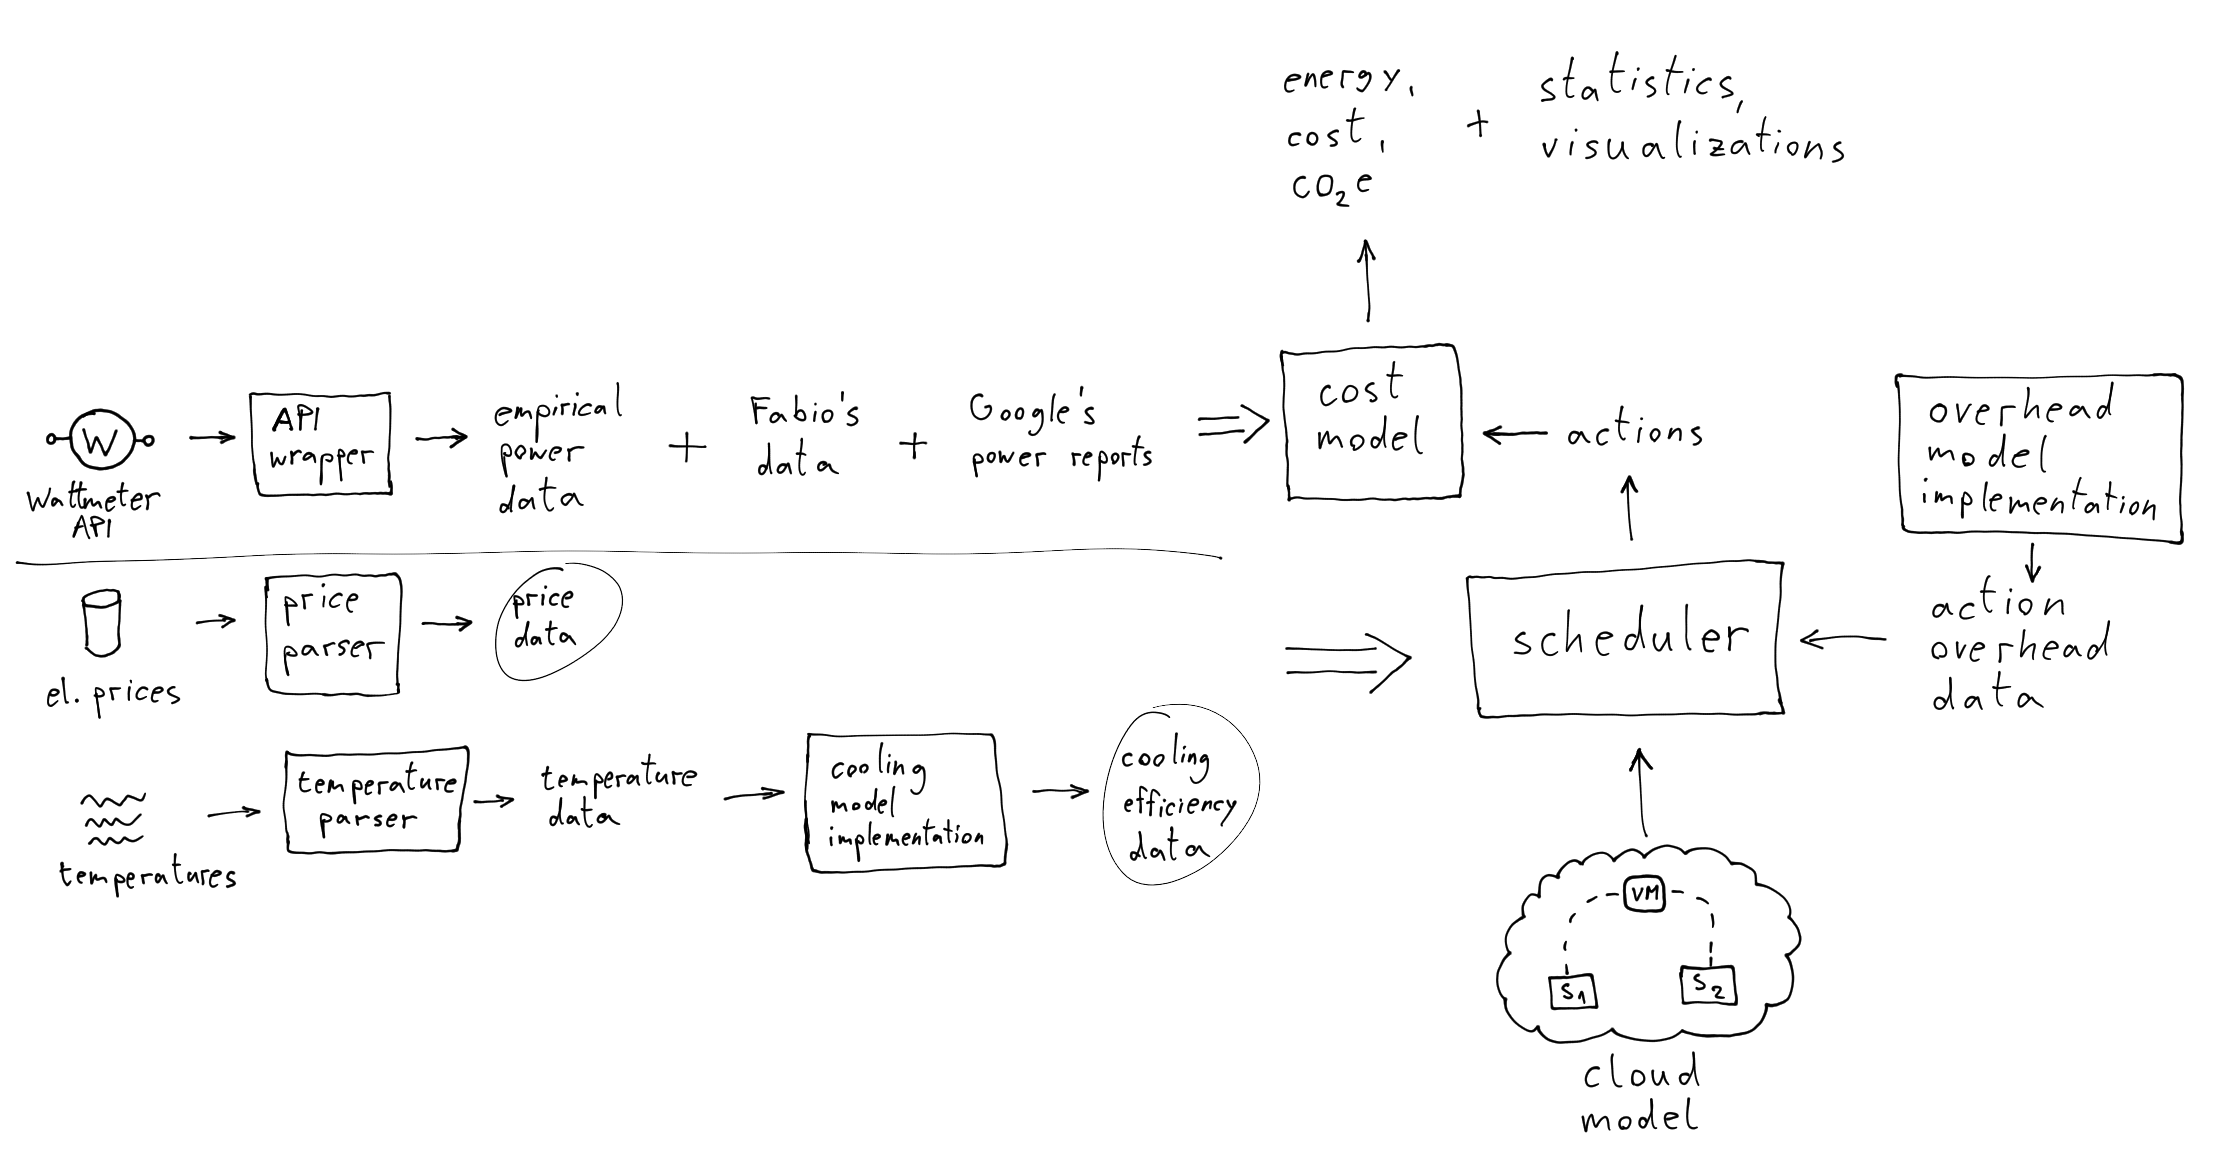 energy,
cost,
CO₂e
+
statistics,
visualizations
W
Wattmeter
API
API
wrapper
empirical
power
data
+
Fabio's
data
+
Google's
power reports
cost
model
actions
overhead
model
implementation
el. prices
price
parser
price
data
scheduler
action
overhead
data
temperatures
temperature
parser
temperature
data
cooling
model
implementation
cooling
efficiency
data
VM
S₁
S₂
cloud
model